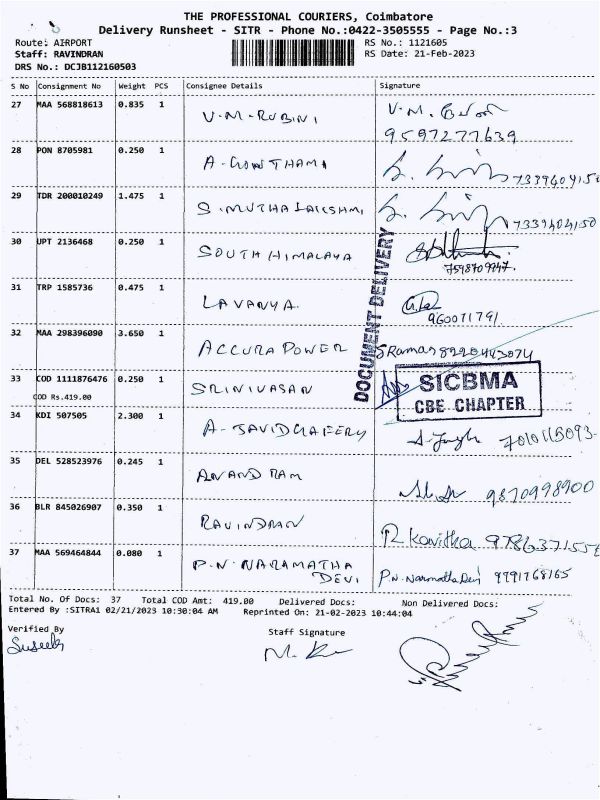 THE PROFESSIONAL COURIERS, Coimbatore
Delivery Runsheet - SITR - Phone No.:0422-3505555 - Page No.:3
Route: AIRPORT
RS No.: 1121605
Staff: RAVINDRAN
RS Date: 21-Feb-2023
DRS No.: DCJB112160503
S No Consignment No Weight PCS Consignee Details Signature
27 MAA 568818613 0.835 1 V.M-RUBINI V.M.
9597277639
28 PON 8705981 0.250 1 A-GOWTHAMI
29 TDR 200010249 1.475 1 S.MUTHALAKSHMI
30 UPT 2136468 0.250 1 SOUTH HIMALAYA
31 TRP 1585736 0.475 1 LAVANYA
960071791
32 MAA 298396090 3.650 1 ACCURA POWER
33 COD 1111876476 0.250 1 SRINIVASAN
COD Rs.419.00
DOCUMENT DELIVERY
SICBMA
CBE CHAPTER
34 KDI 507505 2.300 1 A-
35 DEL 528523976 0.245 1 ANAND RAM 9870998900
36 BLR 845026907 0.350 1 RAVINDRAN R Kavitha
37 MAA 569464844 0.080 1 P.N-NARAMATHA
DEVI P.N. 9791768165
Total No. Of Docs: 37 Total COD Amt: 419.00 Delivered Docs: Non Delivered Docs:
Entered By :SITRA1 02/21/2023 10:30:04 AM Reprinted On: 21-02-2023 10:44:04
Verified By
Staff Signature